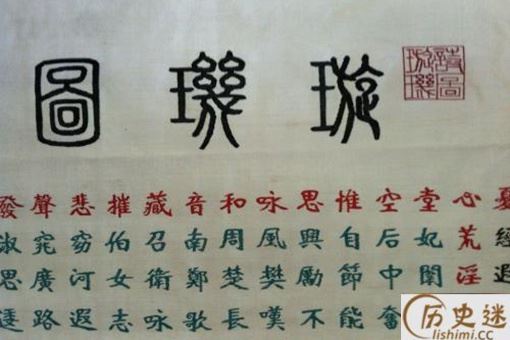 璇璣圖
璇詩
璣圖
發聲悲摧藏音和咏思惟空堂心憂
淑窕窈伯召南周風興自后妃荒經
思廣河女衛鄭楚樊勵節中闈淫遐
逶路遐志咏歌長嘆不能奮
历史迷
lishimi.cc